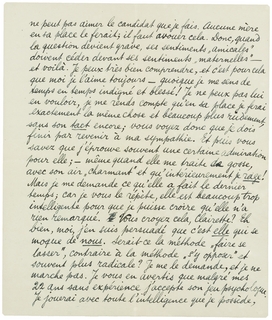 ne peut pas aimer le candidat que je fais. Aucune mère
en sa place le ferait; il faut avouer cela. Donc, quand
la question devient grave, ses sentiments "amicales"
doivent céder devant ses sentiments "maternelles" —
et voilà. Je peux très bien comprendre, et c'est pour cela
que moi je l'aime toujours — quoique je me sens de
temps en temps indigné et blessé! Je ne peux pas lui
en vouloir, je me rends compte qu'en sa place je ferai
exactement la même chose et beaucoup plus rudement,
sans son tact encore; vous voyez donc que je dois
finir par revenir à ma sympathie. Et puis vous
savez que j'éprouve souvent une certaine admiration
pour elle; — même quand elle me traite de gosse,
avec son air "charmant" et qu'intérieurement je rage!
Mais je me demande ce qu'elle a fait le dernier
temps, car je vous le répète, elle est beaucoup trop
intelligente pour que je puisse croire qu'elle n'a
rien remarqué. Vous croyez cela, Clairette? Eh
bien, moi, j'en suis persuadé que c'est elle qui se
moque de nous. Serait-ce la méthode "faire se
lasser", contraire à la méthode "s'y opposer" et
souvent plus radicale? Je me le demande, et je ne
marche pas. Je vous en avertis que malgré mes
22 ans sans expérience j'accepte son jeu
je jouerai avec toute l'intelligence que je possède,